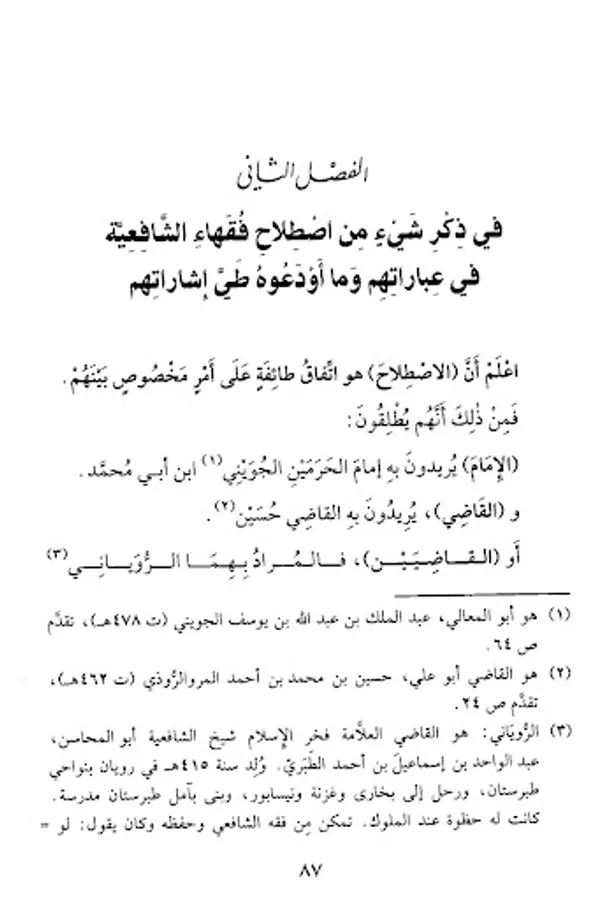 الفصل الثاني
في ذِكْرِ شَيْءٍ مِن اصْطِلاحِ فُقَهاءِ الشَّافِعِيَّة
في عِباراتِهِم وَما أَوْدَعُوهُ طَيَّ إِشاراتِهِم
اعْلَمْ أَنَّ (الاصْطِلاحَ) هو اتِّفاقُ طائِفَةٍ عَلَى أَمْرٍ مَخْصُوصٍ بَيْنَهُمْ.
فَمِنْ ذٰلِكَ أَنَّهُم يُطْلِقُونَ:
(الإِمَامَ) يُريدونَ بِهِ إمامَ الحَرَمَيْنِ الجُوَيْنِي(١) ابن أبي مُحمَّد.
و (القَاضِي)، يُرِيدُونَ بِه القاضِي حُسَيْن(٢).
أَو (القـاضِيَيْـن)، فـالمُـرادُ بِـهِمَـا الـرُّوَيَـانِـي(٣)
(١) هو أبو المعالي، عبد الملك بن عبد الله بن يوسف الجويني (ت ٤٧٨هـ)، تقدَّم
ص ٦٤.
(٢) هو القاضي أبو علي، حسين بن محمد بن أحمد المروالرُّوذي (ت ٤٦٢هـ)،
تقدَّم ص ٢٤.
(٣) الرُّويَاني: هو القاضي العلاَّمة فخر الإسلام شيخ الشافعية أبو المحاسن،
عبد الواحد بن إسماعيل بن أحمد الطَبَرِيّ. وُلِد سنة ٤١٥هـ في رويان بنواحي
طبرستان، ورحل إلى بخارى وغزنة ونيسابور، وبنى بآمل طبرستان مدرسة.
كانت له حظوة عند الملوك. تمكن مِن فقه الشافعي وحفظه وكان يقول: لو =
٨٧